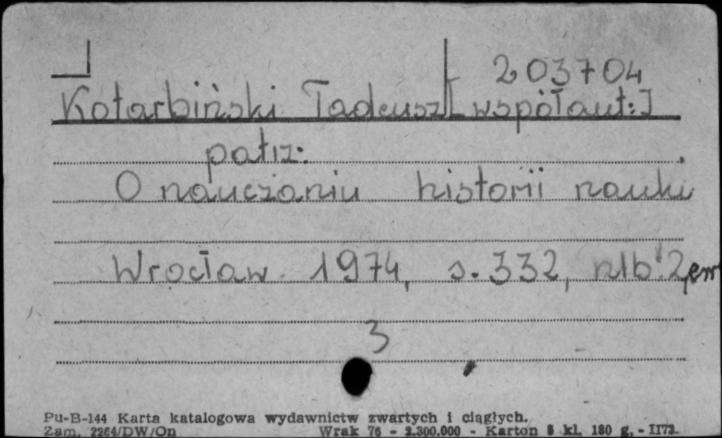 203704
Kotarbiński Tadeusz [współaut:]
patrz:
O nauczaniu historii nauki
Wrocław 1974, s. 332, nlb. 2, err
3
Pu-B-144 Karta katalogowa wydawnictw zwartych i ciągłych.
Zam. 2264/DW/On Wrak 76 - 2.300.000 - Karton 8 kl. 180 g. - II72.